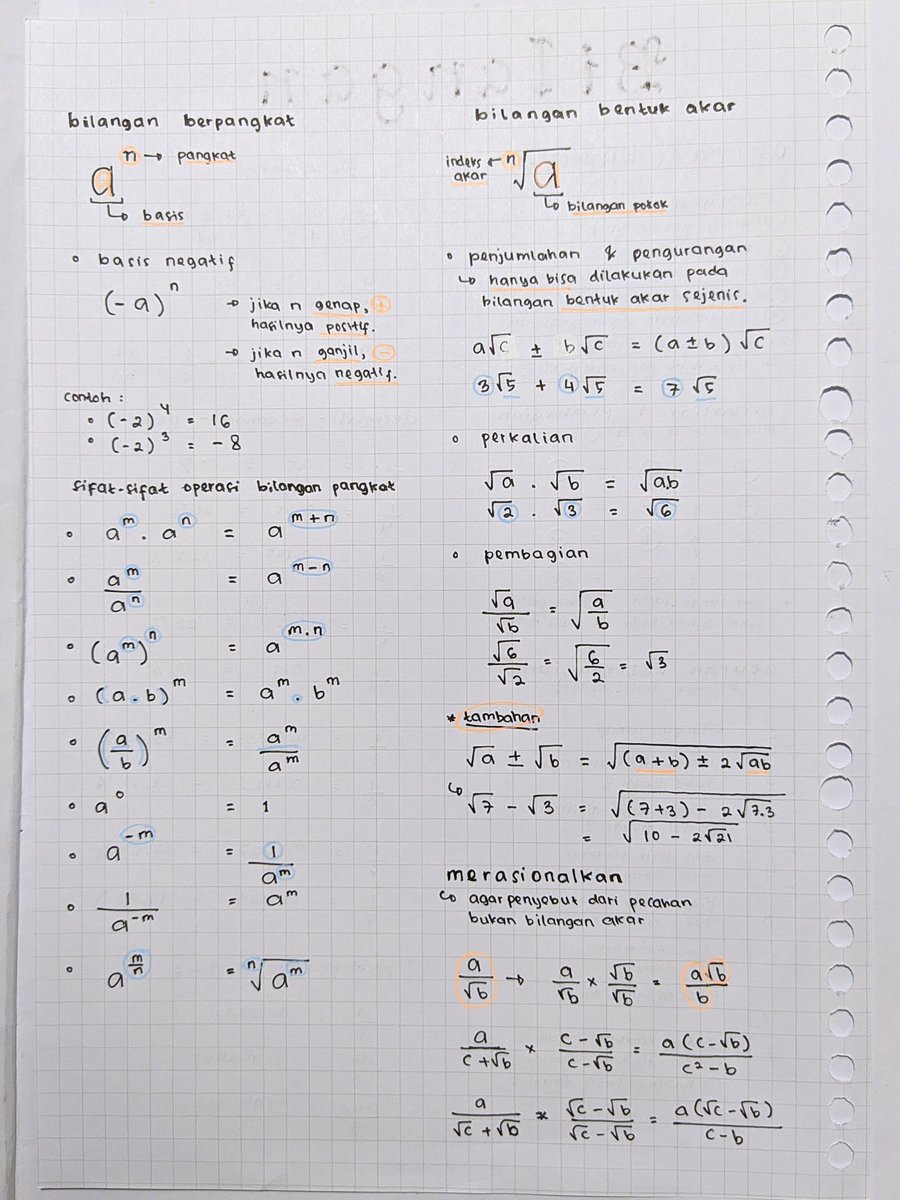 Bilangan
bilangan berpangkat
n → pangkat
a
↳ basis
• basis negatif
(-a)^n
→ jika n genap, +
hasilnya positif.
→ jika n ganjil, −
hasilnya negatif.
contoh :
• (-2)^4 = 16
• (-2)^3 = -8
sifat-sifat operasi bilangan pangkat
• a^m . a^n = a^(m+n)
• a^m/a^n = a^(m-n)
• (a^m)^n = a^(m.n)
• (a.b)^m = a^m . b^m
• (a/b)^m = a^m/a^m
• a^0 = 1
• a^(-m) = 1/a^m
• 1/a^(-m) = a^m
• a^(m/n) = ⁿ√(a^m)
bilangan bentuk akar
indeks ← ⁿ√a
akar
↳ bilangan pokok
• penjumlahan & pengurangan
↳ hanya bisa dilakukan pada
bilangan bentuk akar sejenis.
a√c ± b√c = (a ± b) √c
3√5 + 4√5 = 7√5
• perkalian
√a . √b = √ab
√2 . √3 = √6
• pembagian
√a/√b = √(a/b)
√6/√2 = √(6/2) = √3
* tambahan
√a ± √b = √((a+b) ± 2√ab)
↳ √7 - √3 = √((7+3) - 2√7.3)
= √(10 - 2√21)
merasionalkan
↳ agar penyebut dari pecahan
bukan bilangan akar
a/√b → a/√b × √b/√b = a√b/b
a/(c+√b) × (c-√b)/(c-√b) = a(c-√b)/(c²-b)
a/(√c+√b) × (√c-√b)/(√c-√b) = a(√c-√b)/(c-b)